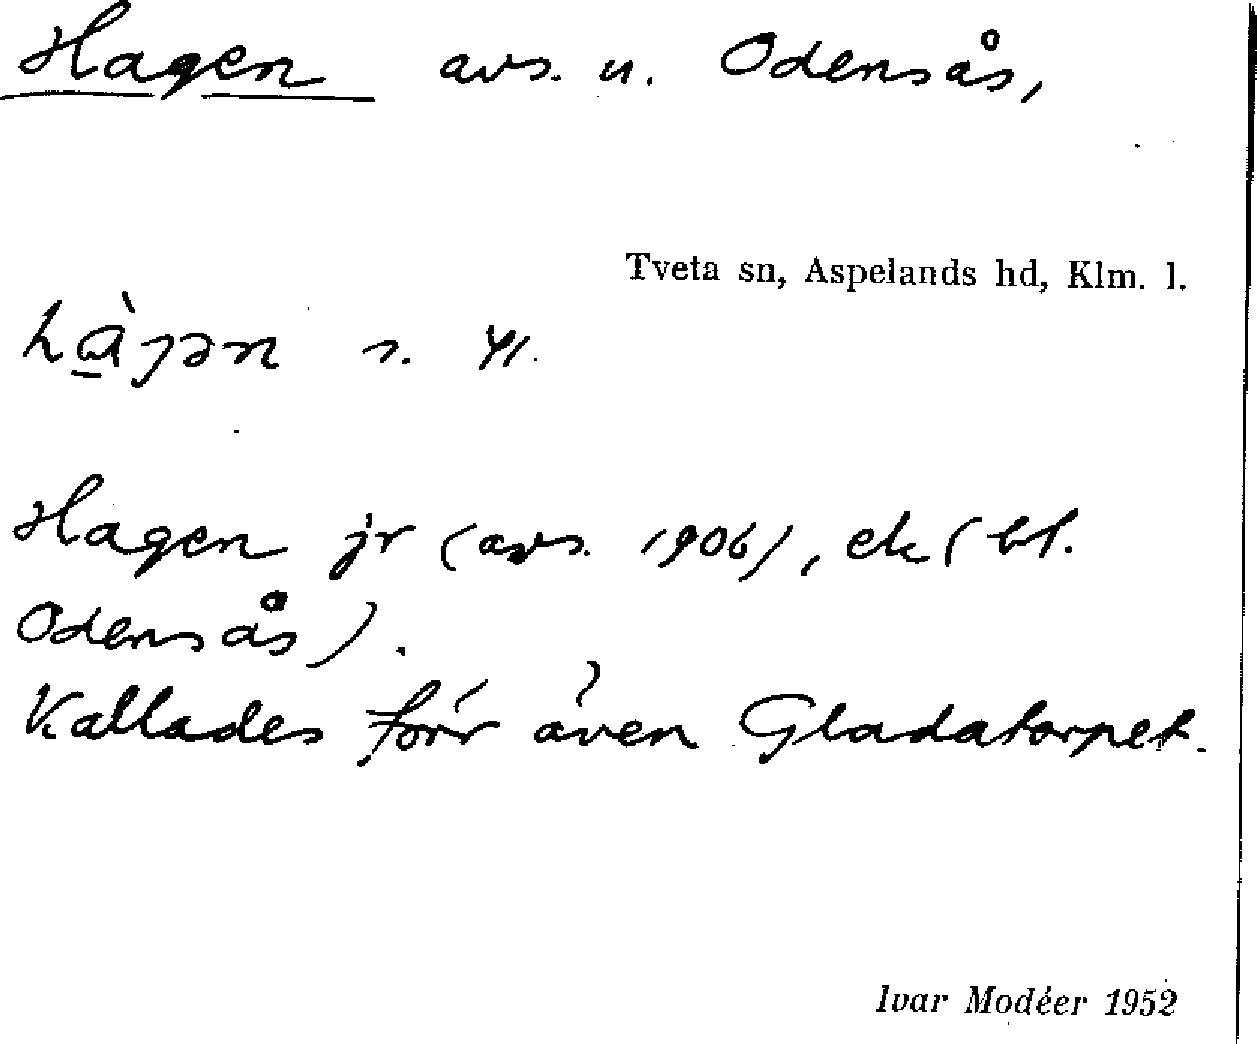 Hagen avs. u. Odensås,
Tveta sn, Aspelands hd, Klm. l.
Hagen jr (avs. 1906), ek (bl.
Odensås).
Kallades förr även Gladatorpet.
Ivar Modéer 1952